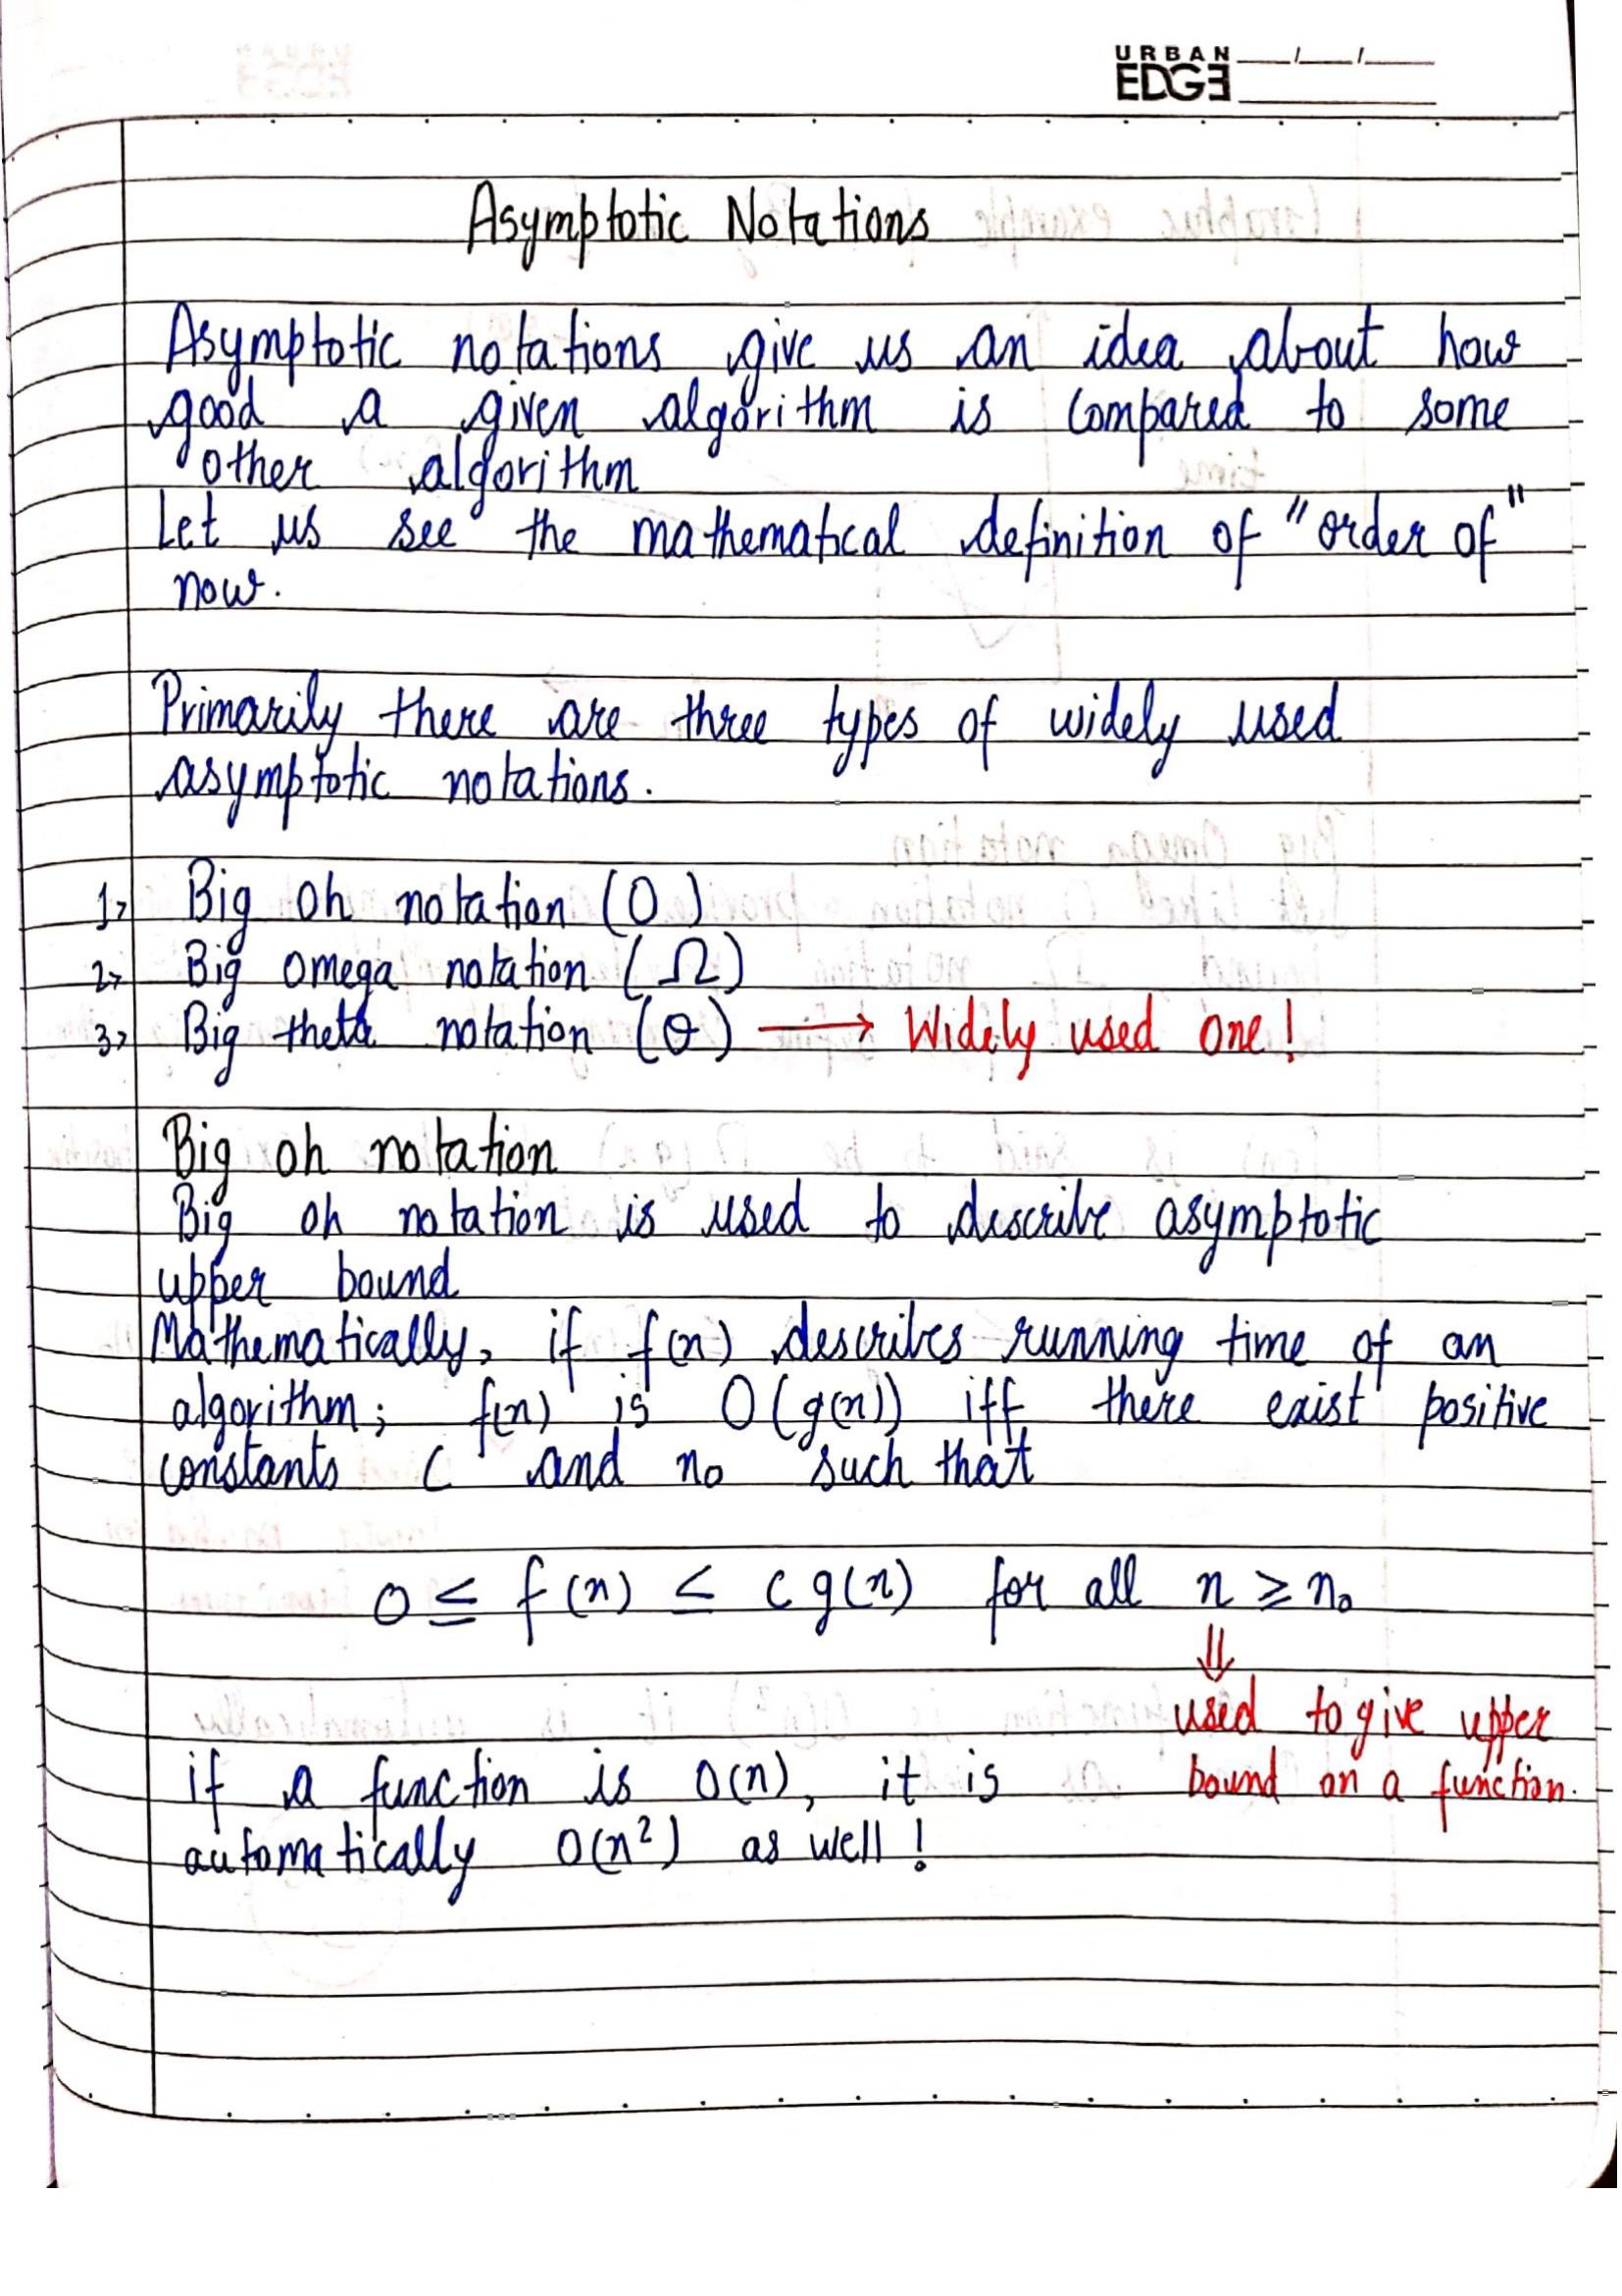 URBAN
EDGE
Asymptotic Notations
Asymptotic notations give us an idea about how
good a given algorithm is compared to some
other algorithm
Let us see the mathematical definition of "order of"
now.
Primarily there are three types of widely used
asymptotic notations.
1> Big oh notation (O)
2> Big omega notation (Ω)
3> Big theta notation (θ) → Widely used one!
Big oh notation
Big oh notation is used to describe asymptotic
upper bound
Mathematically, if f(n) describes running time of an
algorithm; f(n) is O(g(n)) iff there exist positive
constants C and n₀ such that
0 ≤ f(n) ≤ c g(n) for all n ≥ n₀
⇓
used to give upper
bound on a function.
if a function is O(n), it is
automatically O(n²) as well!